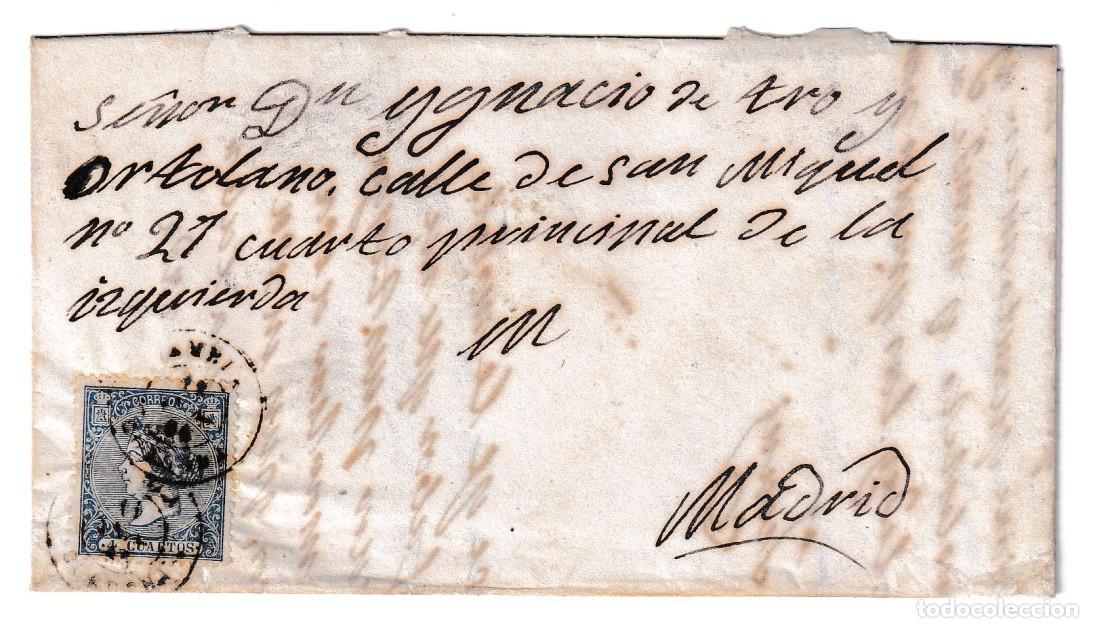 Señor Dn Ygnacio de tro y
Ortolano. calle de san Miguel
nº 27 cuarto principal de la
izquierda
M
Madrid
CORREOS
4 CUARTOS
todocoleccion